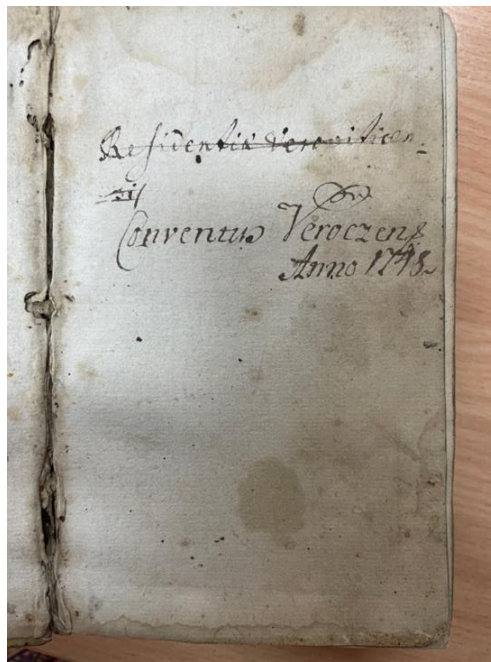 Residentia Veroviticen
sis
Conventus Veroczens
Anno 1748